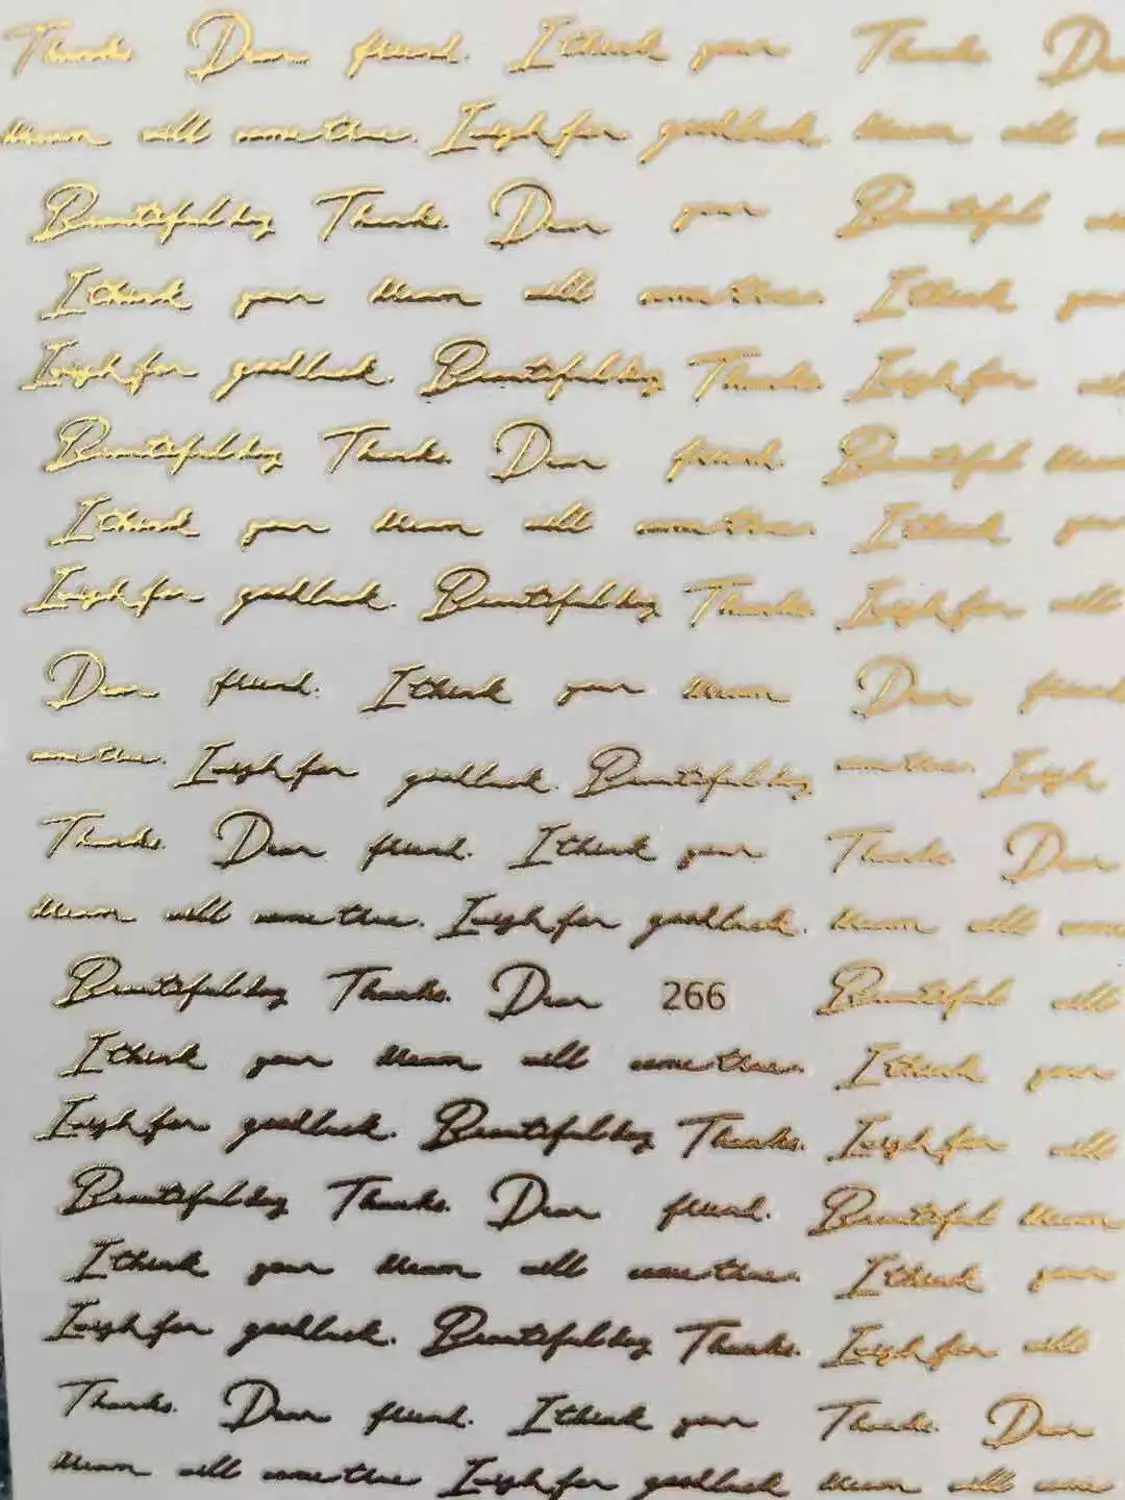 Thanks. Dear friend. I think your Thanks. De
dream will come true. I wish for good luck. dream will
Beautiful day Thanks. Dear your Beautiful
I think your dream will come true. I think you
I wish for good luck. Beautiful day Thanks. I wish for
Beautiful day Thanks. Dear friend. Beautiful dream
I think your dream will come true. I think you
I wish for good luck. Beautiful day Thanks. I wish for will
Dear friend. I think your dream Dear friend
come true. I wish for good luck. Beautiful day come true. I wish
Thanks. Dear friend. I think your Thanks. Dear
dream will come true. I wish for good luck. dream will come
Beautiful day Thanks. Dear 266 Beautiful will
I think your dream will come true. I think your
I wish for good luck. Beautiful day Thanks. I wish for will
Beautiful day Thanks. Dear friend. Beautiful dream
I think your dream will come true. I think your
I wish for good luck. Beautiful day Thanks. I wish for will
Thanks. Dear friend. I think your Thanks. Dear
dream will come true I wish for good luck dream will come